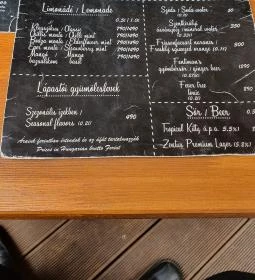 Limonádé / Lemonade
0.5l / 1 l
Klasszikus / Classic 790/1490
Chilli menta / Chilli mint 790/1490
Bodza menta / Elderflower mint 790/1490
Eper menta / Strawberry mint 790/1490
Mangó / Mango 790/1490
bazsalikom basil
Lápastói gyümölcslevek
Szezonális ízekben /
Seasonal flavors (0.2l) 490
Áraink forintban értendők és az áfát tartalmazzák
Prices in Hungarian brutto Forint
Szóda / Soda water 50
(0.1l)
Szentkirályi
ásványvíz / mineral water 390
Frissenfacsart narancs /
freshly squeezed orange (0.1l) 900
Fentimans
gyömbérsör / ginger beer 990
Fever tree
tonic 890
(0.2l)
Sör / Beer
Tropical Kátq a.p.a. 5.5%
Zentiq Premium Lager (5.2%)